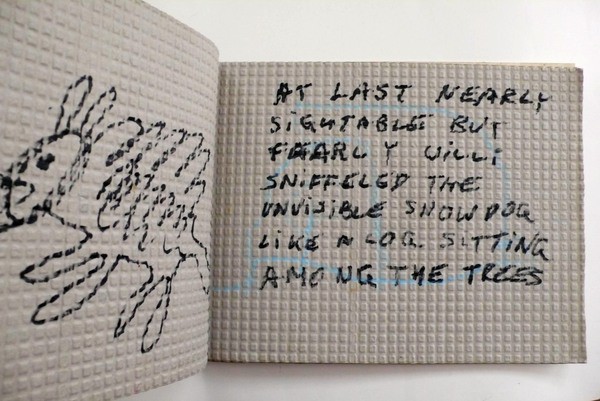 AT LAST NEARLY
SIGHTABLE BUT
FEARLY WILLI
SNIFFELED THE
UNVISIBLE SNOWDOG
LIKE A LOG. SITTING
AMONG THE TREES